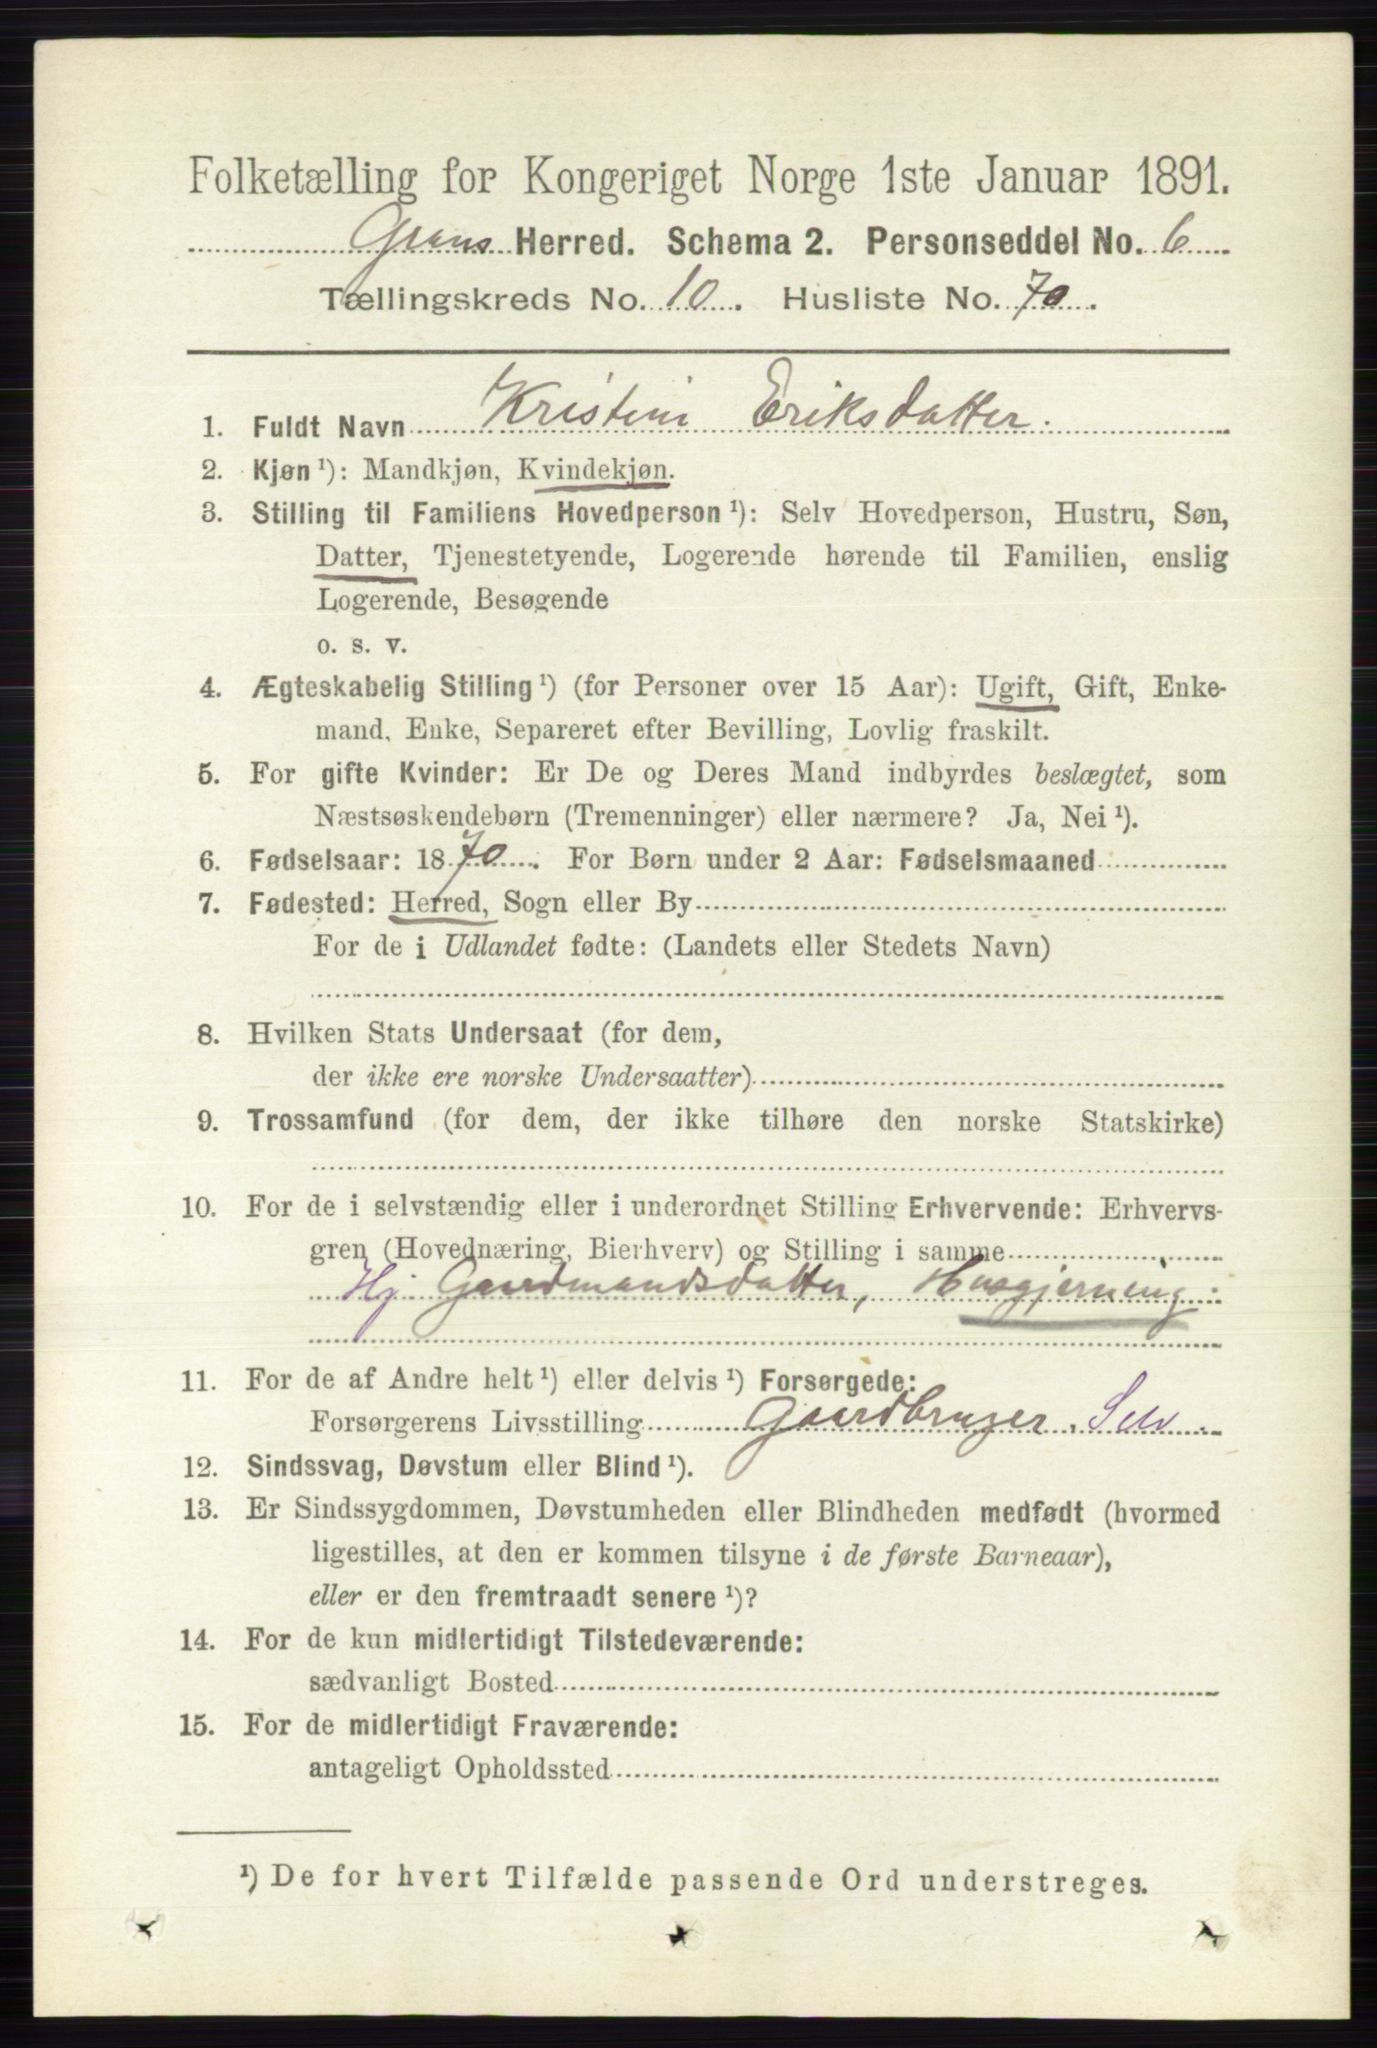 Folketælling for Kongeriget Norge 1ste Januar 1891.
Grans Herred. Schema 2. Personseddel No. 6
Tællingskreds No. 10. Husliste No. 70.
1. Fuldt Navn Kristine Eriksdatter.
2. Kjøn ¹): Mandkjøn, Kvindekjøn.
3. Stilling til Familiens Hovedperson ¹): Selv Hovedperson, Hustru, Søn,
Datter, Tjenestetyende, Logerende hørende til Familien, enslig
Logerende, Besøgende
o. s. v.
4. Ægteskabelig Stilling ¹) (for Personer over 15 Aar): Ugift, Gift, Enke-
mand, Enke, Separeret efter Bevilling, Lovlig fraskilt.
5. For gifte Kvinder: Er De og Deres Mand indbyrdes beslægtet, som
Næstsøskendebørn (Tremenninger) eller nærmere? Ja, Nei ¹).
6. Fødselsaar: 1870. For Børn under 2 Aar: Fødselsmaaned
7. Fødested: Herred, Sogn eller By
For de i Udlandet fødte: (Landets eller Stedets Navn)
8. Hvilken Stats Undersaat (for dem,
der ikke ere norske Undersaatter)
9. Trossamfund (for dem, der ikke tilhøre den norske Statskirke)
10. For de i selvstændig eller i underordnet Stilling Erhvervende: Erhvervs-
gren (Hovednæring, Bierhverv) og Stilling i samme
Hj Gaardmandsdatter, Husgjerning
11. For de af Andre helt ¹) eller delvis ¹) Forsørgede:
Forsørgerens Livsstilling Gaardbruger. Selv
12. Sindssvag, Døvstum eller Blind ¹).
13. Er Sindssygdommen, Døvstumheden eller Blindheden medfødt (hvormed
ligestilles, at den er kommen tilsyne i de første Barneaar),
eller er den fremtraadt senere ¹)?
14. For de kun midlertidigt Tilstedeværende:
sædvanligt Bosted
15. For de midlertidigt Fraværende:
antageligt Opholdssted
¹) De for hvert Tilfælde passende Ord understreges.